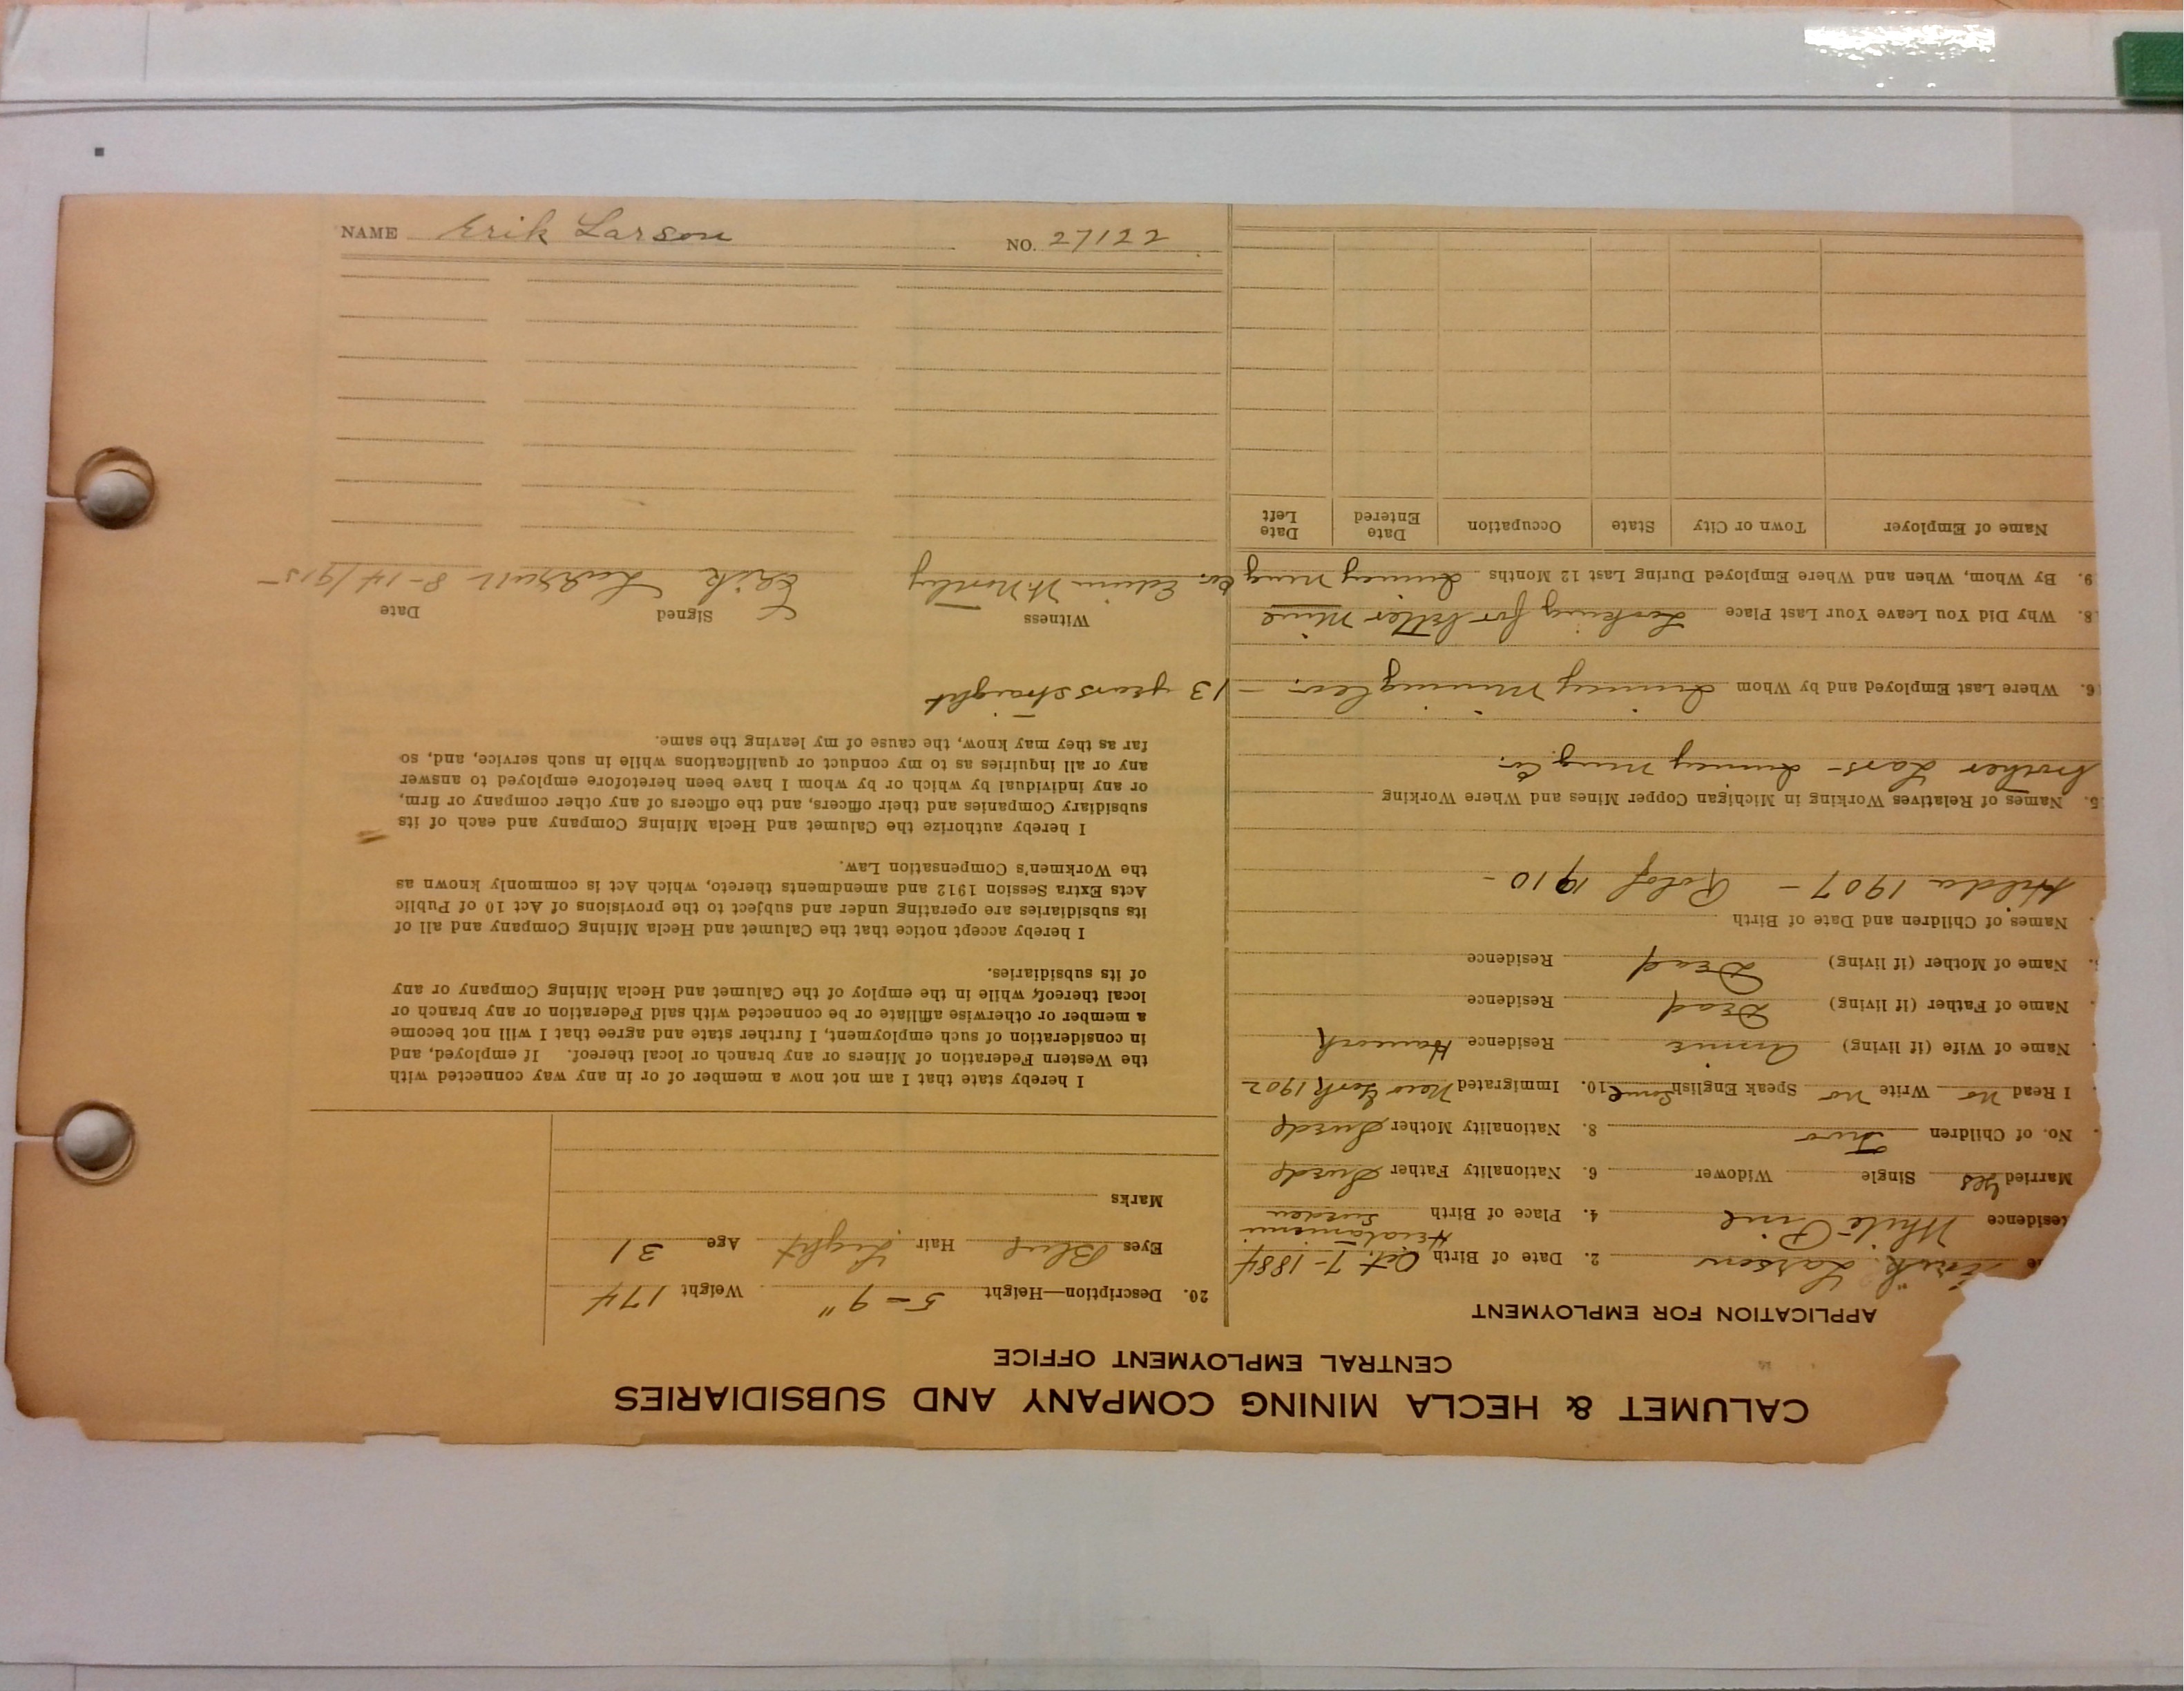 CALUMET & HECLA MINING COMPANY AND SUBSIDIARIES
CENTRAL EMPLOYMENT OFFICE
APPLICATION FOR EMPLOYMENT
e Erik Larson 2. Date of Birth Oct. 7-1884
esidence White Pine 4. Place of Birth Sweden
Married Yes Single Widower 6. Nationality Father Swede
No. of Children Two 8. Nationality Mother Swede
I Read No Write No Speak English Some 10. Immigrated New York 1902
Name of Wife (if living) Annie Residence Hancock
Name of Father (if living) Dead Residence
Name of Mother (if living) Dead Residence
Names of Children and Date of Birth
Hilda 1907 - Rolof 1910 -
5. Names of Relatives Working in Michigan Copper Mines and Where Working
Brother Lars - Quincy Mng Co.
6. Where Last Employed and by Whom Quincy Mining Co. - 13 years straight
8. Why Did You Leave Your Last Place Looking for better Mine
9. By Whom, When and Where Employed During Last 12 Months Quincy Mng Co.
Name of Employer Town or City State Occupation Date Entered Date Left
20. Description—Height 5-9" Weight 174
Eyes Blue Hair Light Age 31
Marks
I hereby state that I am not now a member of or in any way connected with
the Western Federation of Miners or any branch or local thereof. If employed, and
in consideration of such employment, I further state and agree that I will not become
a member or otherwise affiliate or be connected with said Federation or any branch or
local thereof, while in the employ of the Calumet and Hecla Mining Company or any
of its subsidiaries.
I hereby accept notice that the Calumet and Hecla Mining Company and all of
its subsidiaries are operating under and subject to the provisions of Act 10 of Public
Acts Extra Session 1912 and amendments thereto, which Act is commonly known as
the Workmen's Compensation Law.
I hereby authorize the Calumet and Hecla Mining Company and each of its
subsidiary Companies and their officers, and the officers of any other company or firm,
or any individual by which or by whom I have been heretofore employed to answer
any or all inquiries as to my conduct or qualifications while in such service, and, so
far as they may know, the cause of my leaving the same.
Witness Signed Date
Edwin W Northey Erik Larson 8-14/915
NAME Erik Larson NO. 27122